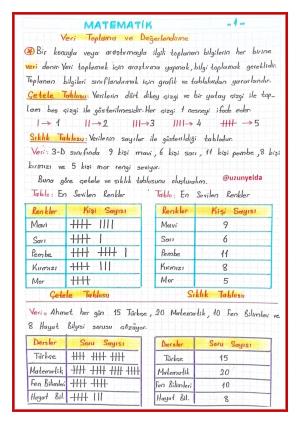 MATEMATİK
-1-
Veri Toplama ve Değerlendirme
Bir konuyla veya araştırmayla ilgili toplanan bilgilerin her birine
veri denir. Veri toplamak için araştırma yapmak, bilgi toplamak gereklidir.
Toplanan bilgileri sınıflandırmak için grafik ve tablolardan yararlanılır.
Çetele Tablosu: Verilerin dört dikey çizgi ve bir yatay çizgi ile top-
lam beş çizgi ile gösterilmesidir. Her çizgi 1 nesneyi ifade eder.
I → 1 II → 2 III → 3 IIII → 4 → 5
Sıklık Tablosu: Verilerin sayılar ile gösterildiği tablodur.
Veri: 3-D sınıfında 9 kişi mavi, 6 kişi sarı, 11 kişi pembe, 8 kişi
kırmızı ve 5 kişi mor rengi seviyor.
Buna göre çetele ve sıklık tablosunu oluşturalım. @uzunyelda
Tablo: En Sevilen Renkler Tablo: En Sevilen Renkler
Renkler Kişi Sayısı Renkler Kişi Sayısı
Mavi Mavi 9
Sarı Sarı 6
Pembe Pembe 11
Kırmızı Kırmızı 8
Mor Mor 5
Çetele Tablosu Sıklık Tablosu
Veri: Ahmet her gün 15 Türkçe, 20 Matematik, 10 Fen Bilimleri ve
8 Hayat Bilgisi sorusu çözüyor.
Dersler Soru Sayısı Dersler Soru Sayısı
Türkçe Türkçe 15
Matematik Matematik 20
Fen Bilimleri Fen Bilimleri 10
Hayat Bil. Hayat Bil. 8